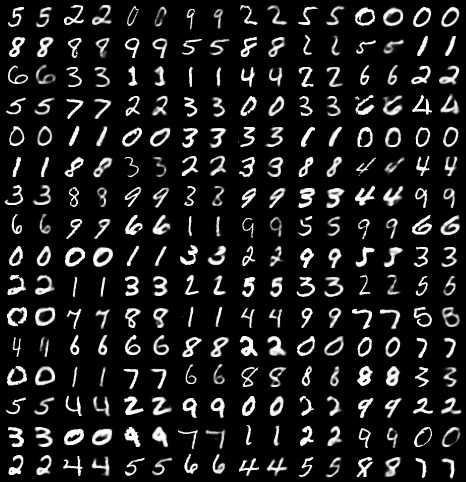 5 5 2 2 0 0 9 9 2 2 5 5 0 0 0 0
8 8 8 8 9 9 5 5 8 8 2 2 5 5 1 1
6 6 3 3 1 1 1 1 4 4 2 2 6 6 2 2
5 5 7 7 2 2 3 3 0 0 3 3 6 6 4 4
0 0 1 1 0 0 3 3 3 3 1 1 0 0 0 0
1 1 8 8 3 3 2 2 3 3 8 8 4 4 4 4
3 3 8 8 9 9 3 8 9 9 3 3 4 4 9 9
6 6 9 9 6 6 1 1 9 9 5 5 9 9 6 6
0 0 0 0 1 1 3 3 2 2 9 9 5 8 3 3
2 2 1 1 3 3 2 2 5 5 3 3 2 2 5 5
0 0 7 7 8 8 1 1 4 4 9 9 7 7 5 8
4 9 6 6 6 6 8 8 2 2 0 0 0 0 7 7
0 0 1 1 7 7 6 6 8 8 8 8 8 8 3 3
5 5 4 4 2 2 9 9 0 0 2 2 9 9 2 2
3 3 0 0 9 9 7 7 1 1 2 2 9 9 0 0
2 2 4 4 5 5 6 6 4 4 5 5 8 8 7 7